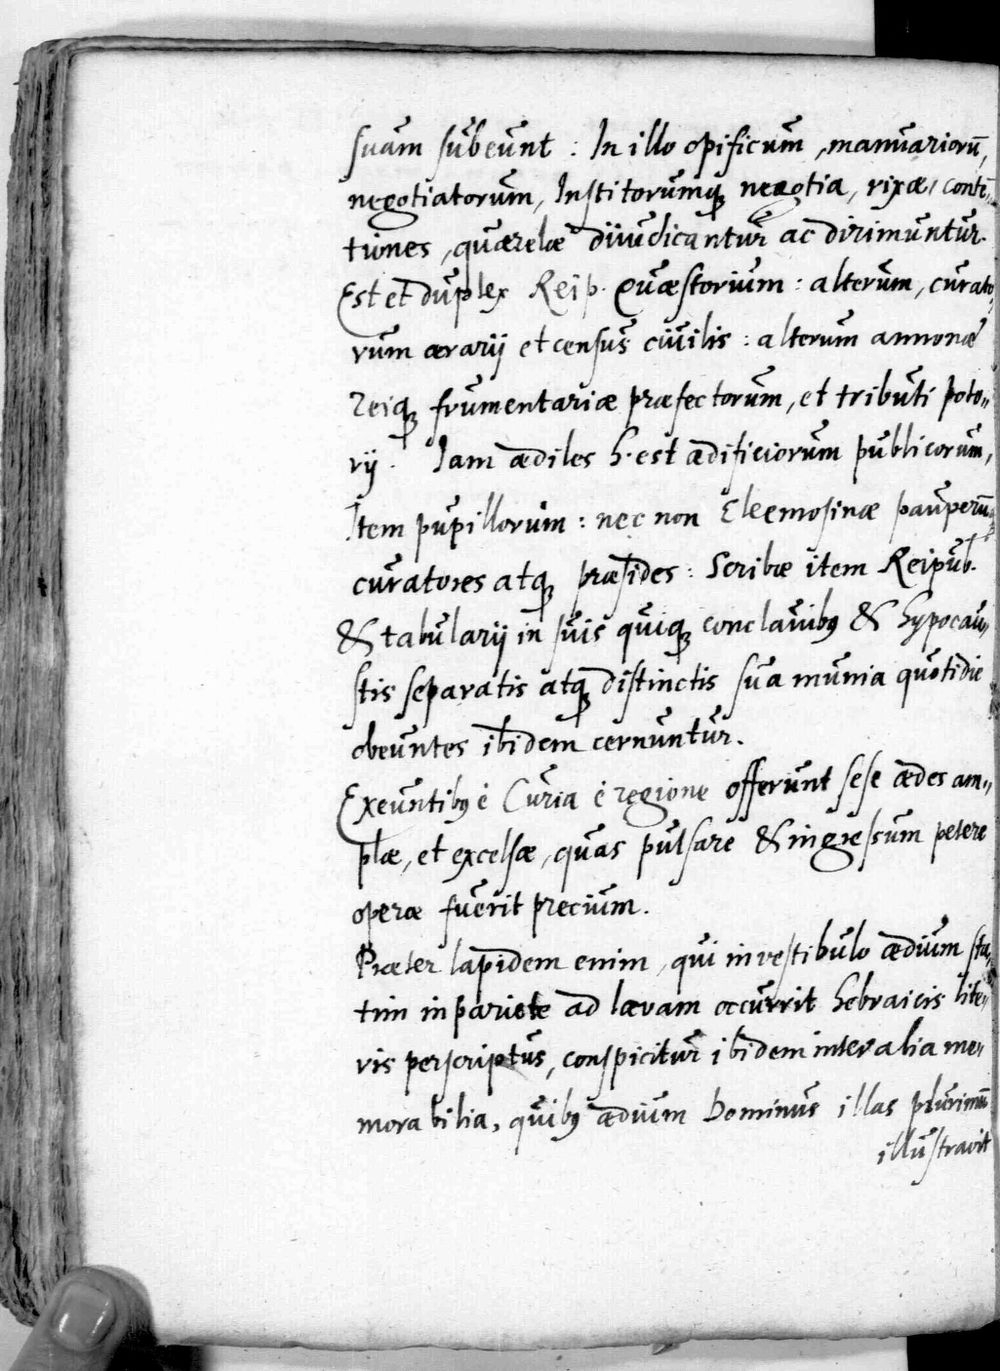 suam subeunt : In illo opificum, manuariorū,
negotiatorum, Institorumq; negotia, rixæ, contē-
tiones, quærelæ diiudicantur ac dirimuntur.
Est et duplex Reip. Quæstorium : alterum, curato-
rum ærarij et census ciuilis : alterum annonæ
reiq; frumentariæ præfectorum, et tributi poto-
rij. Iam ædiles h. est ædificiorum publicorum,
Item pupillorum : nec non Eleemosinæ pauperū
curatores atq; præsides : Scribæ item Reipub.
& tabularij in suis quiq; conclauib9 & hypocau-
stis separatis atq; distinctis sua munia quotidie
obeuntes ibidem cernuntur.
Exeuntib9 è Curia è regione offerunt sese ædes am-
plæ, et excelsæ, quas pulsare & ingressum petere
operæ fuerit precium.
Præter lapidem enim, qui in vestibulo ædium sta-
tim in pariete ad lævam occurrit hebraicis lite-
ris perscriptus, conspicitur ibidem inter alia me-
morabilia, quib9 ædium Dominus illas plurimū
illustravit